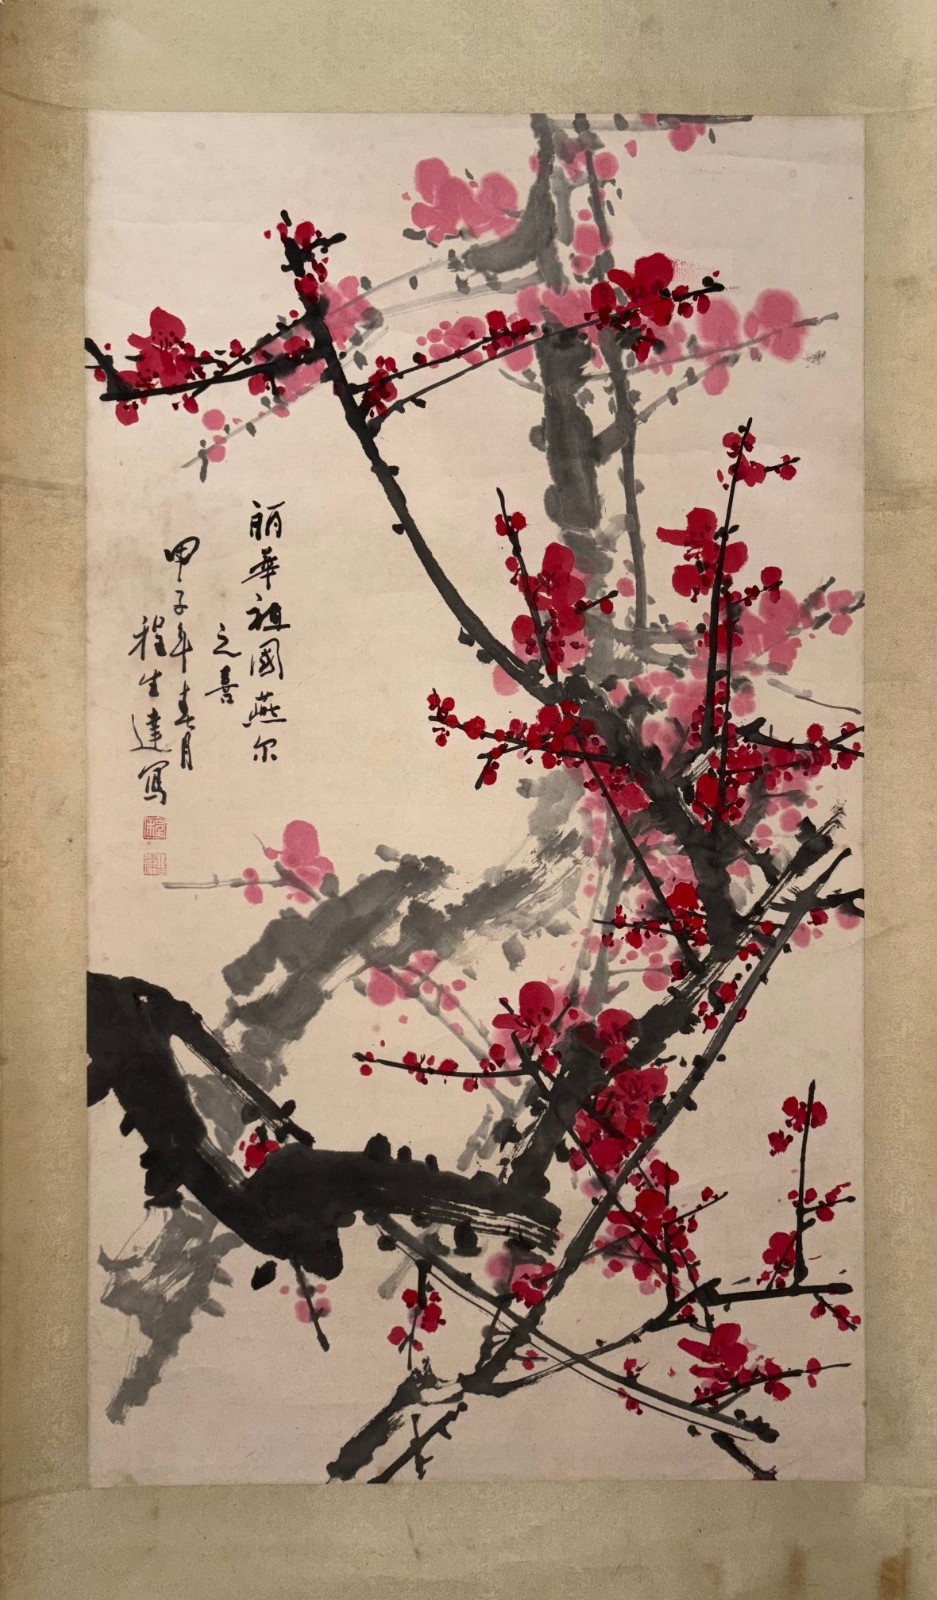 丽華祖國燕尔
之喜
甲子年春月
程生達寫